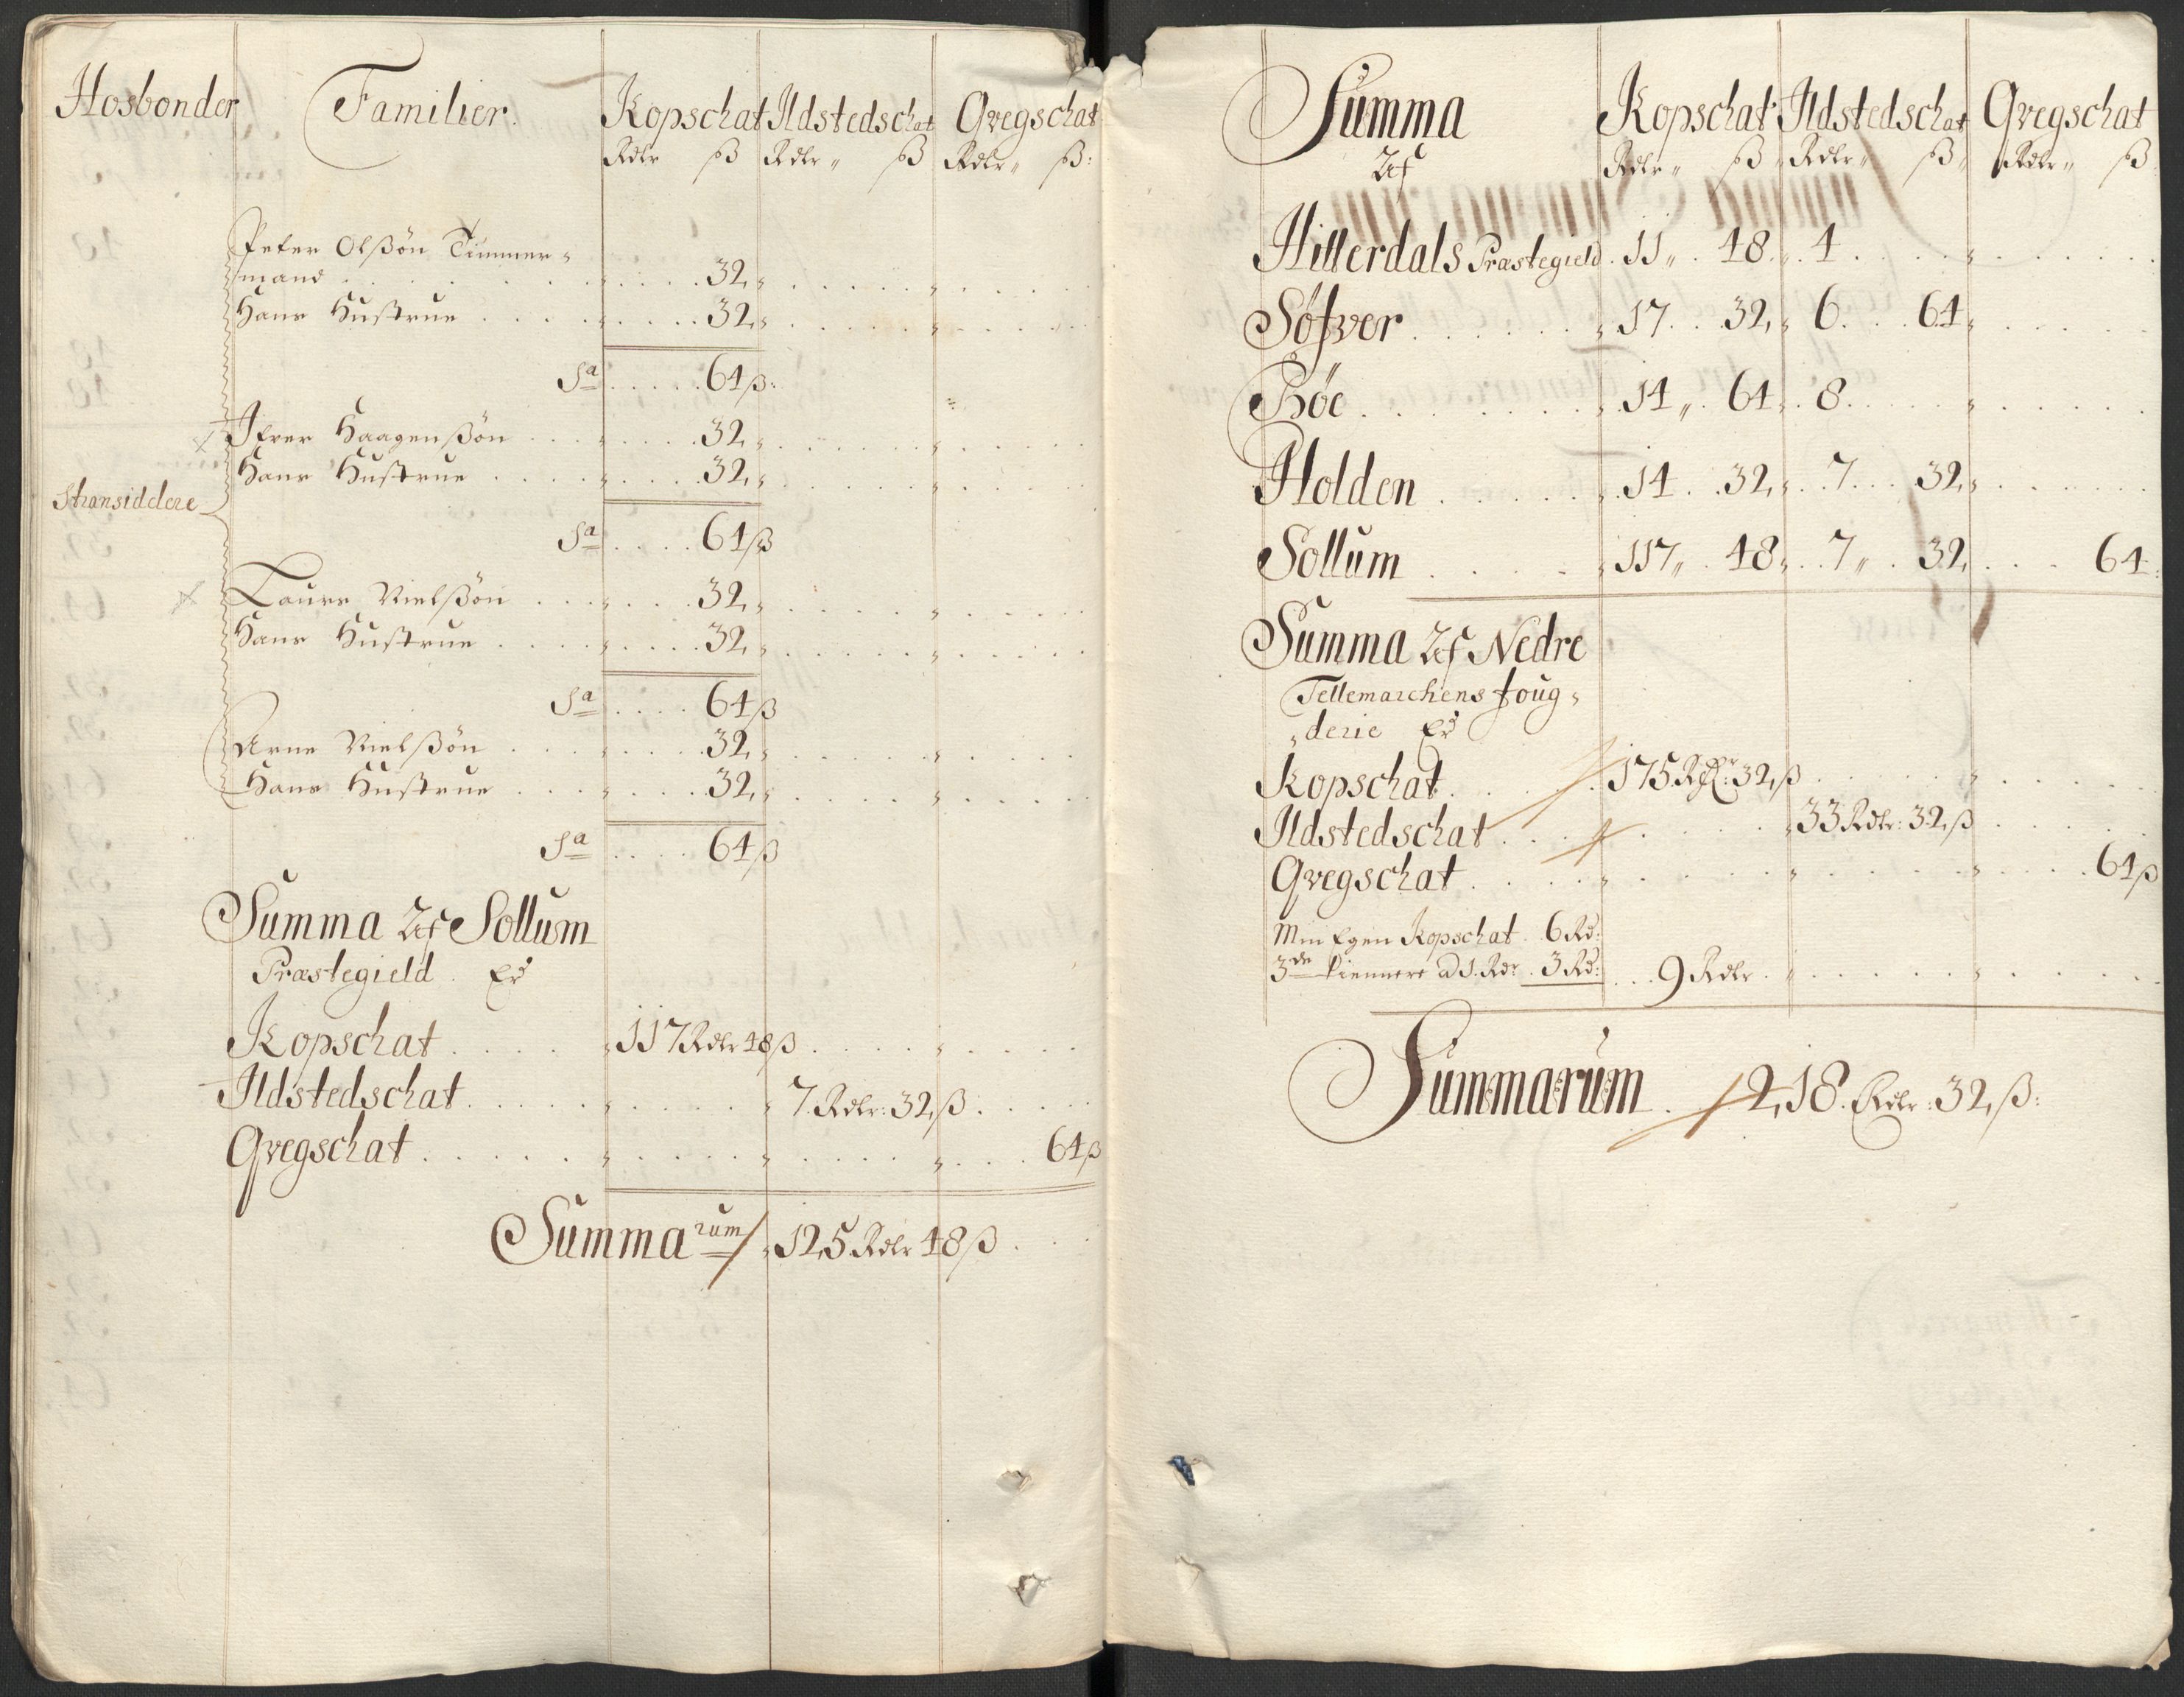 Hosbonder Familier. Kopschat Ildstedschat Qvegschat
Rdlr ß Rdlr„ ß Rdlr„ ß:
Peter Olßøn Timmer„
mand . . . 32„
Hans Hustrue . . . 32„
Sa . . . 64 ß:
Ifver Haagenßøn . . . 32„
Hans Hustrue . . . 32„
Stransiddere
Sa . . . 64 ß
Laurs Nielßøn . . . 32„
Hans Hustrue . . . 32„
Sa . . . 64 ß
Arne Nielßøn . . . 32„
Hans Hustrue . . . 32„
Sa . . . 64 ß
Summa Af Sollum
Præstegield . Er
Kopschat . . . 117 Rdlr 48 ß
Ildstedschat . . . 7 Rdlr: 32 ß
Qvegschat . . . 64 ß
Summarum 125 Rdlr 48 ß
Summa Kopschat Ildstedschat Qvegschat
Af Rdlr„ ß Rdlr„ ß„ Rdlr„ ß
Hitterdals Præstegield . 11„ 48 . 4 . . .
Søfver . . . 17 . 32„ 6 . 64
Bøe . . . 14„ 64 . 8 . . .
Holden . . . 14 . 32„ 7 . 32„
Sollum . . . 117„ 48 . 7„ 32 . . . 64
Summa Af Nedre
Tellemarchens foug„
„derie Er
Kopschat . . . 175 Rdlr: 32 ß
Ildstedschat . . . 33 Rdlr: 32 ß
Qvegschat . . . 64 ß
Min Egen Kopschat . 6 Rd:
3de tiennere a 1 Rdr . 3 Rd: . . . 9 Rdlr .
Summarum . 218 . Rdlr: 32 ß: